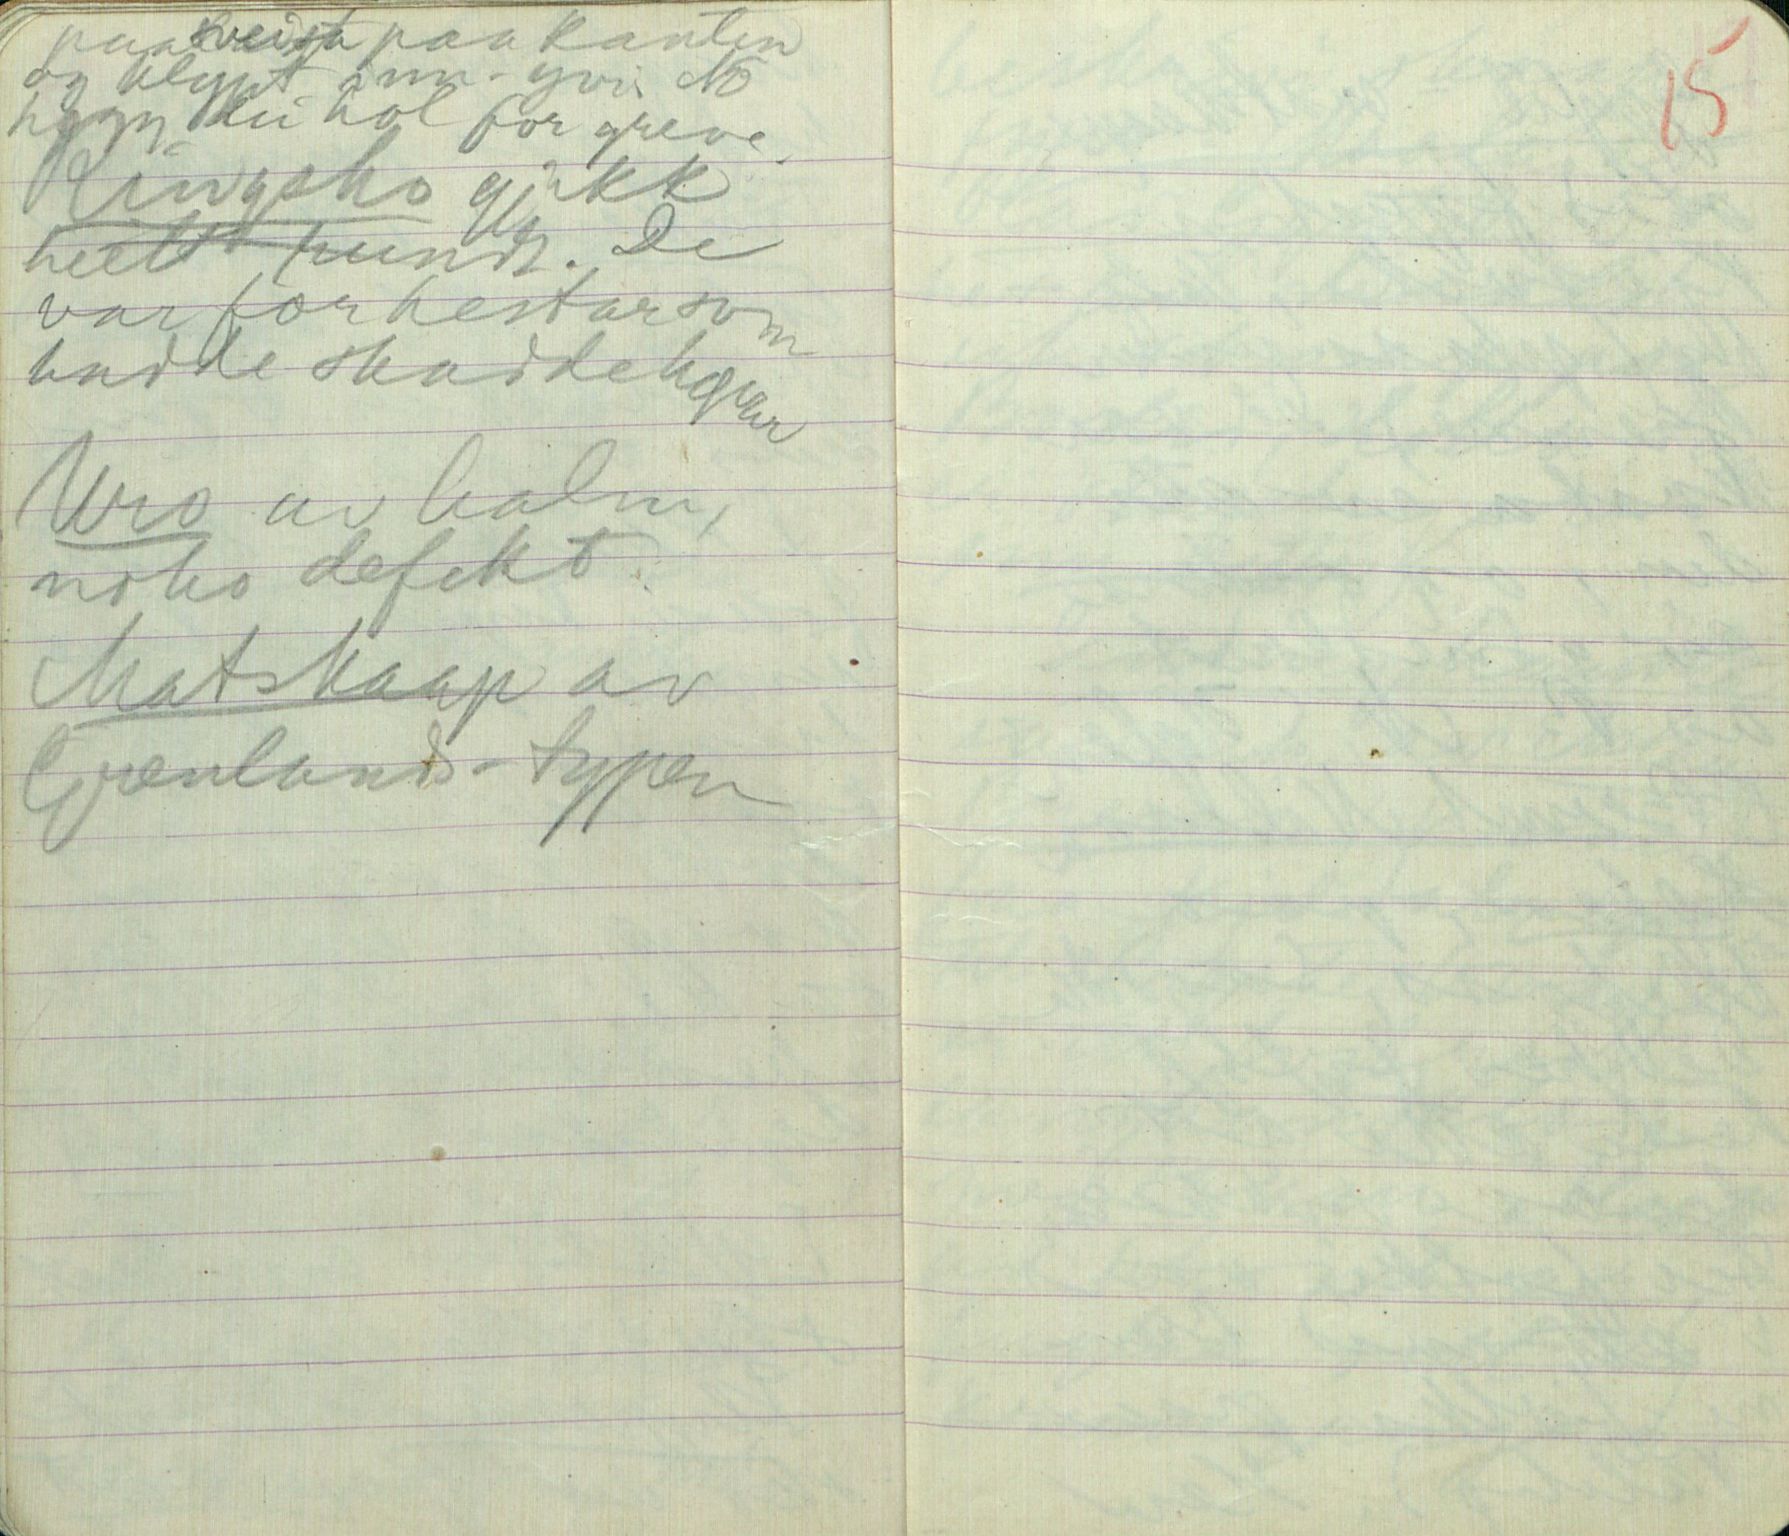 paa kveista paa kanten
og klypt inn-yvi. No
hogg dei hol for greve.
Ringsko gjikk
heelt rundt. De
var for hestar som
hadde skadde hovar
Uro av halm,
noko defekt.
Matskaap av
Grenlands-typen
15